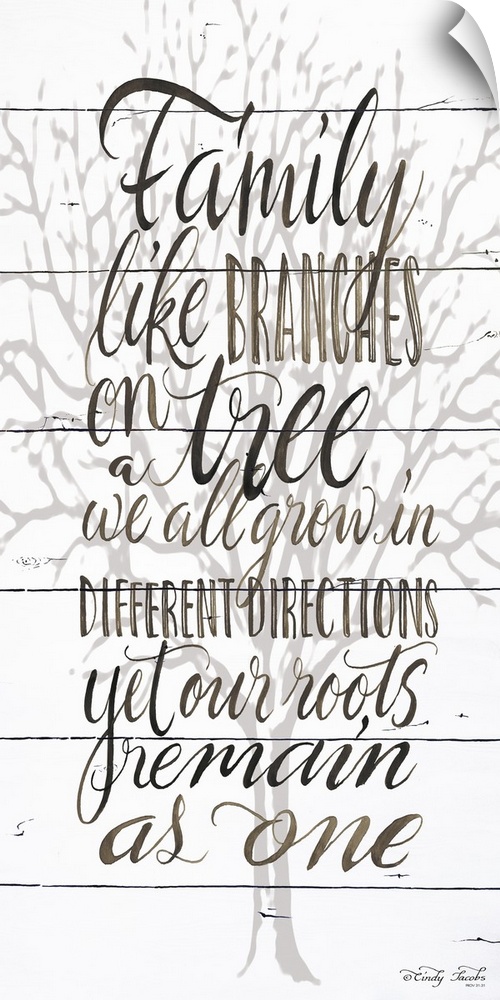 Family
like BRANCHES
on
a tree
we all grow in
DIFFERENT DIRECTIONS
yet our roots
remain
as one
© Cindy Jacobs